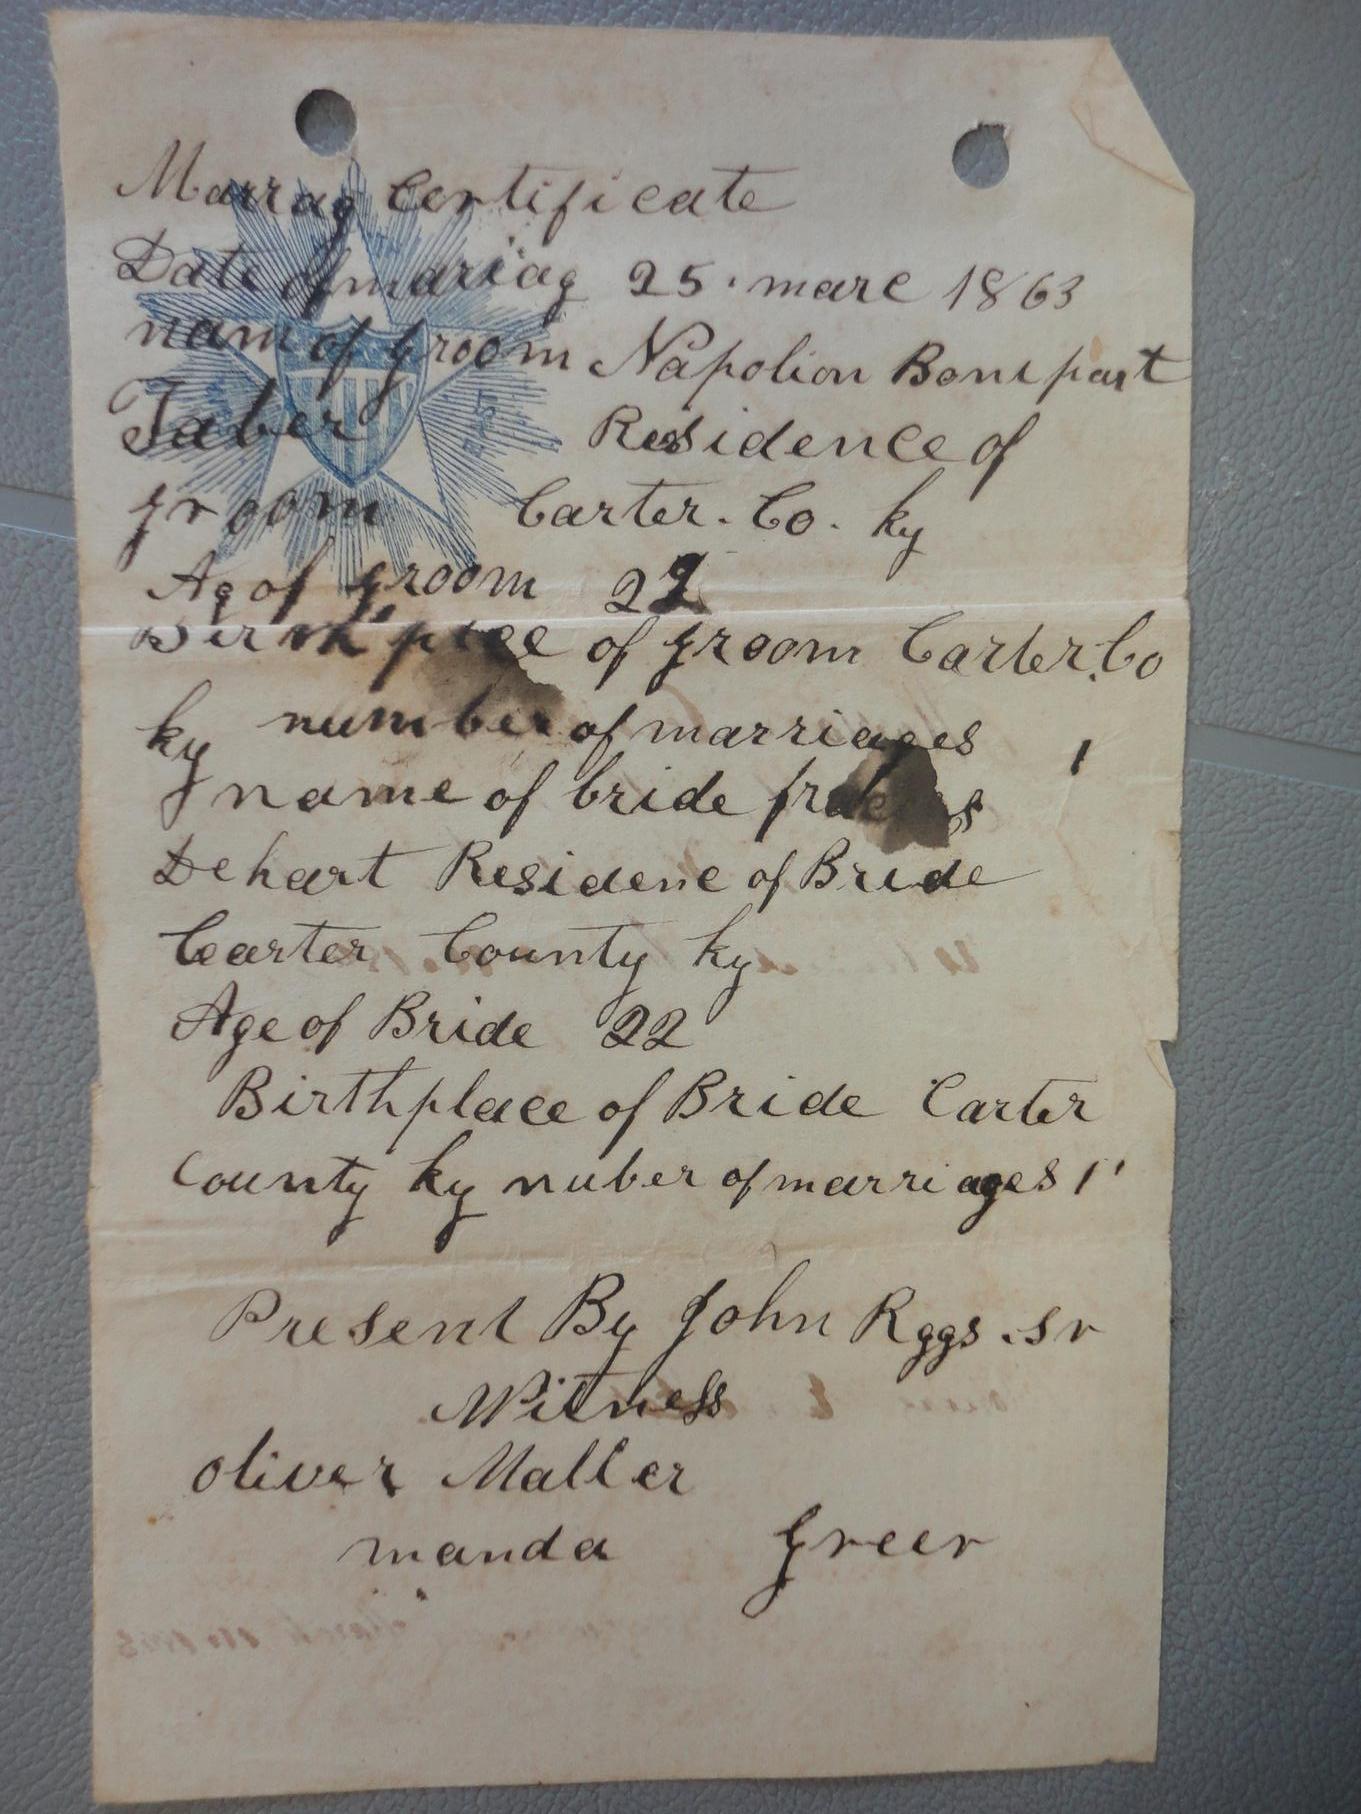 Marrag Certificate
Date of mariag 25. marc 1863
nam of groom Napolion Bonipart
Taber Residence of
groom Carter. Co. ky
Ag of groom 22
Birth place of groom Carter. Co
ky number of marriages 1
name of bride
Dehart Residenc of Bride
Carter County ky
Age of Bride 22
Birthplace of Bride Carter
County ky nuber of marriages 1
Present By John Rggs. sr
Witness
oliver Maller
manda Greer